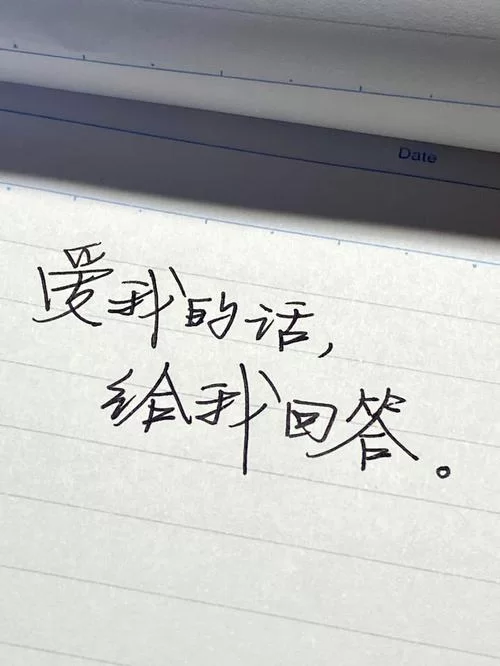 Date
爱我的话,
给我回答。